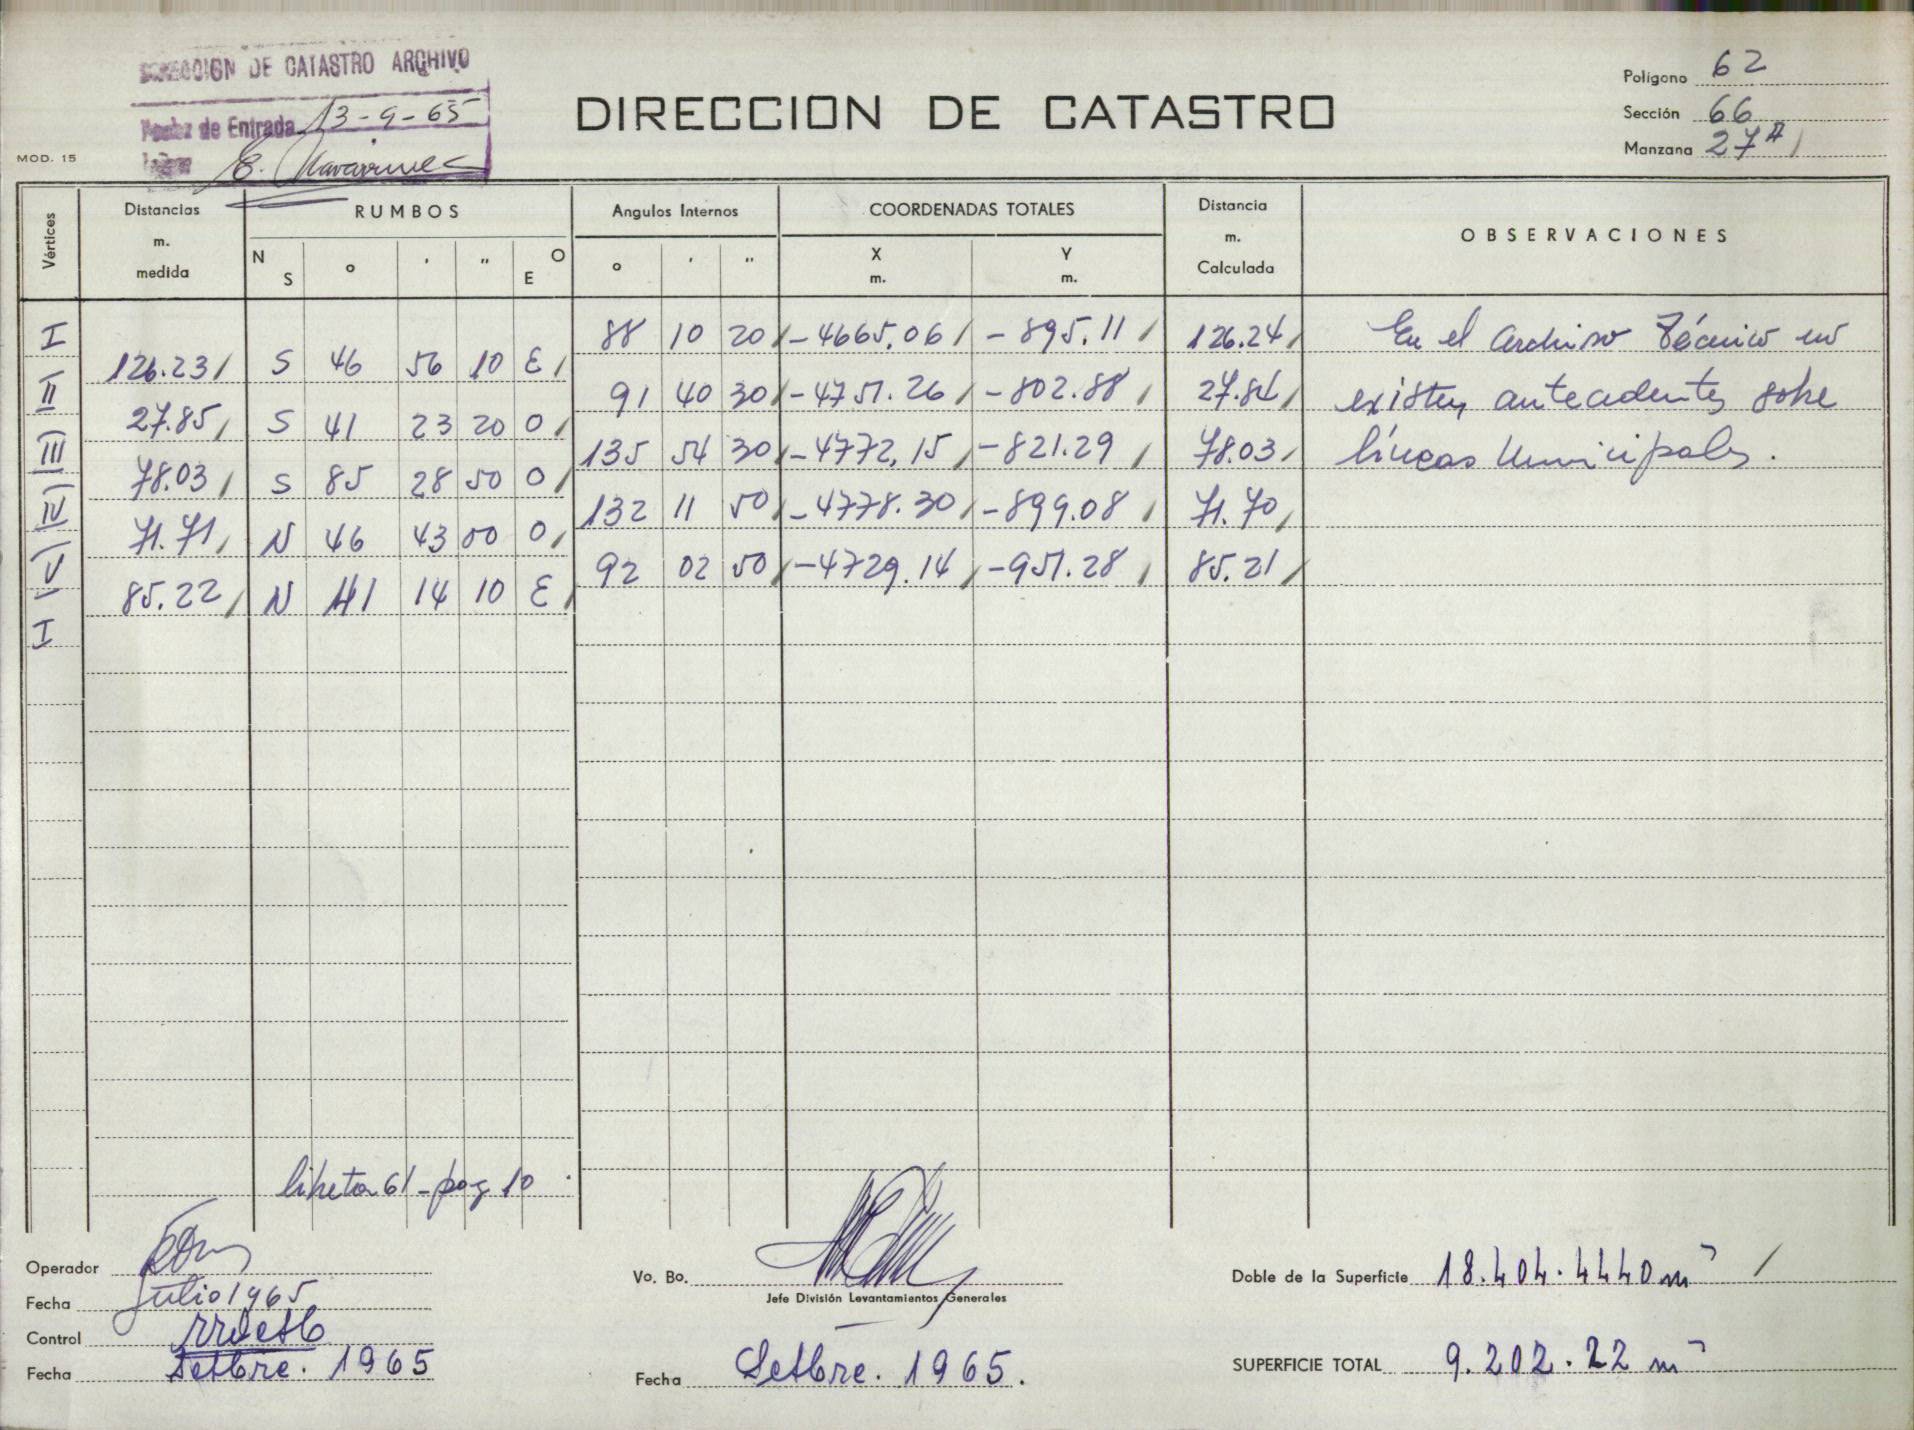 DIRECCION DE CATASTRO ARCHIVO
de Entrada 13-9-65
E.
MOD. 15
DIRECCION DE CATASTRO
Polígono 62
Sección 66
Manzana 27A
Vértices Distancias m. medida RUMBOS Angulos Internos COORDENADAS TOTALES Distancia m. Calculada OBSERVACIONES
N S o ' " O E o ' " X m. Y m.
I 88 10 20 -4665.06 -895.11 126.24 En el Archivo Técnico no
126.23 S 46 56 10 E
II 91 40 30 -4751.26 -802.88 27.84 existen antecedentes sobre
27.85 S 41 23 20 O
III 135 54 30 -4772,15 -821.29 78.03 líneas Municipales.
78.03 S 85 28 50 O
IV 132 11 50 -4778.30 -899.08 71.70
71.71 N 46 43 00 O
V 92 02 50 -4729.14 -951.28 85.21
85.22 N 41 14 10 E
I
libreta 61 - pag 10
Operador
Fecha Julio 1965
Control
Fecha Setbre. 1965
Vo. Bo.
Jefe División Levantamientos Generales
Fecha Setbre. 1965.
Doble de la Superficie 18.404.4440 m²
SUPERFICIE TOTAL 9.202.22 m²